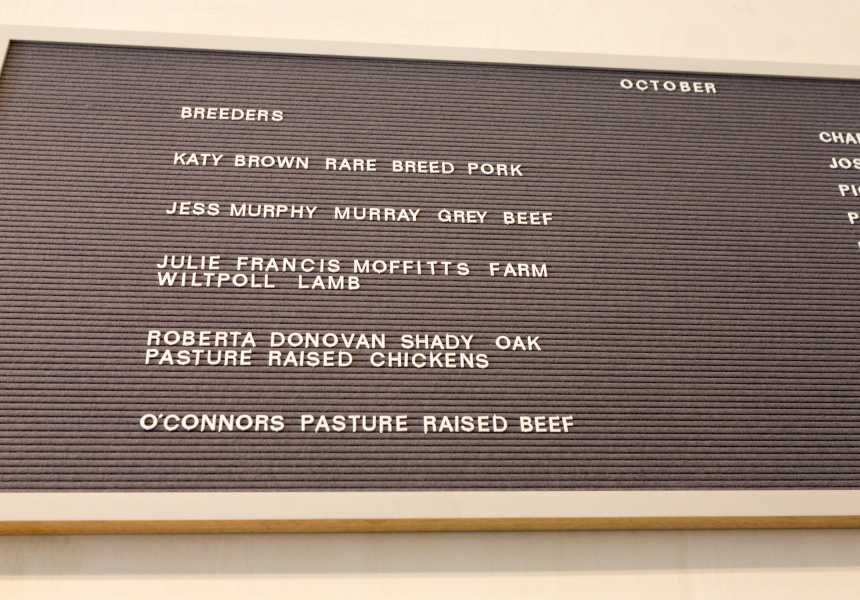 OCTOBER
BREEDERS
KATY BROWN RARE BREED PORK
JESS MURPHY MURRAY GREY BEEF
JULIE FRANCIS MOFFITTS FARM
WILTPOLL LAMB
ROBERTA DONOVAN SHADY OAK
PASTURE RAISED CHICKENS
O'CONNORS PASTURE RAISED BEEF